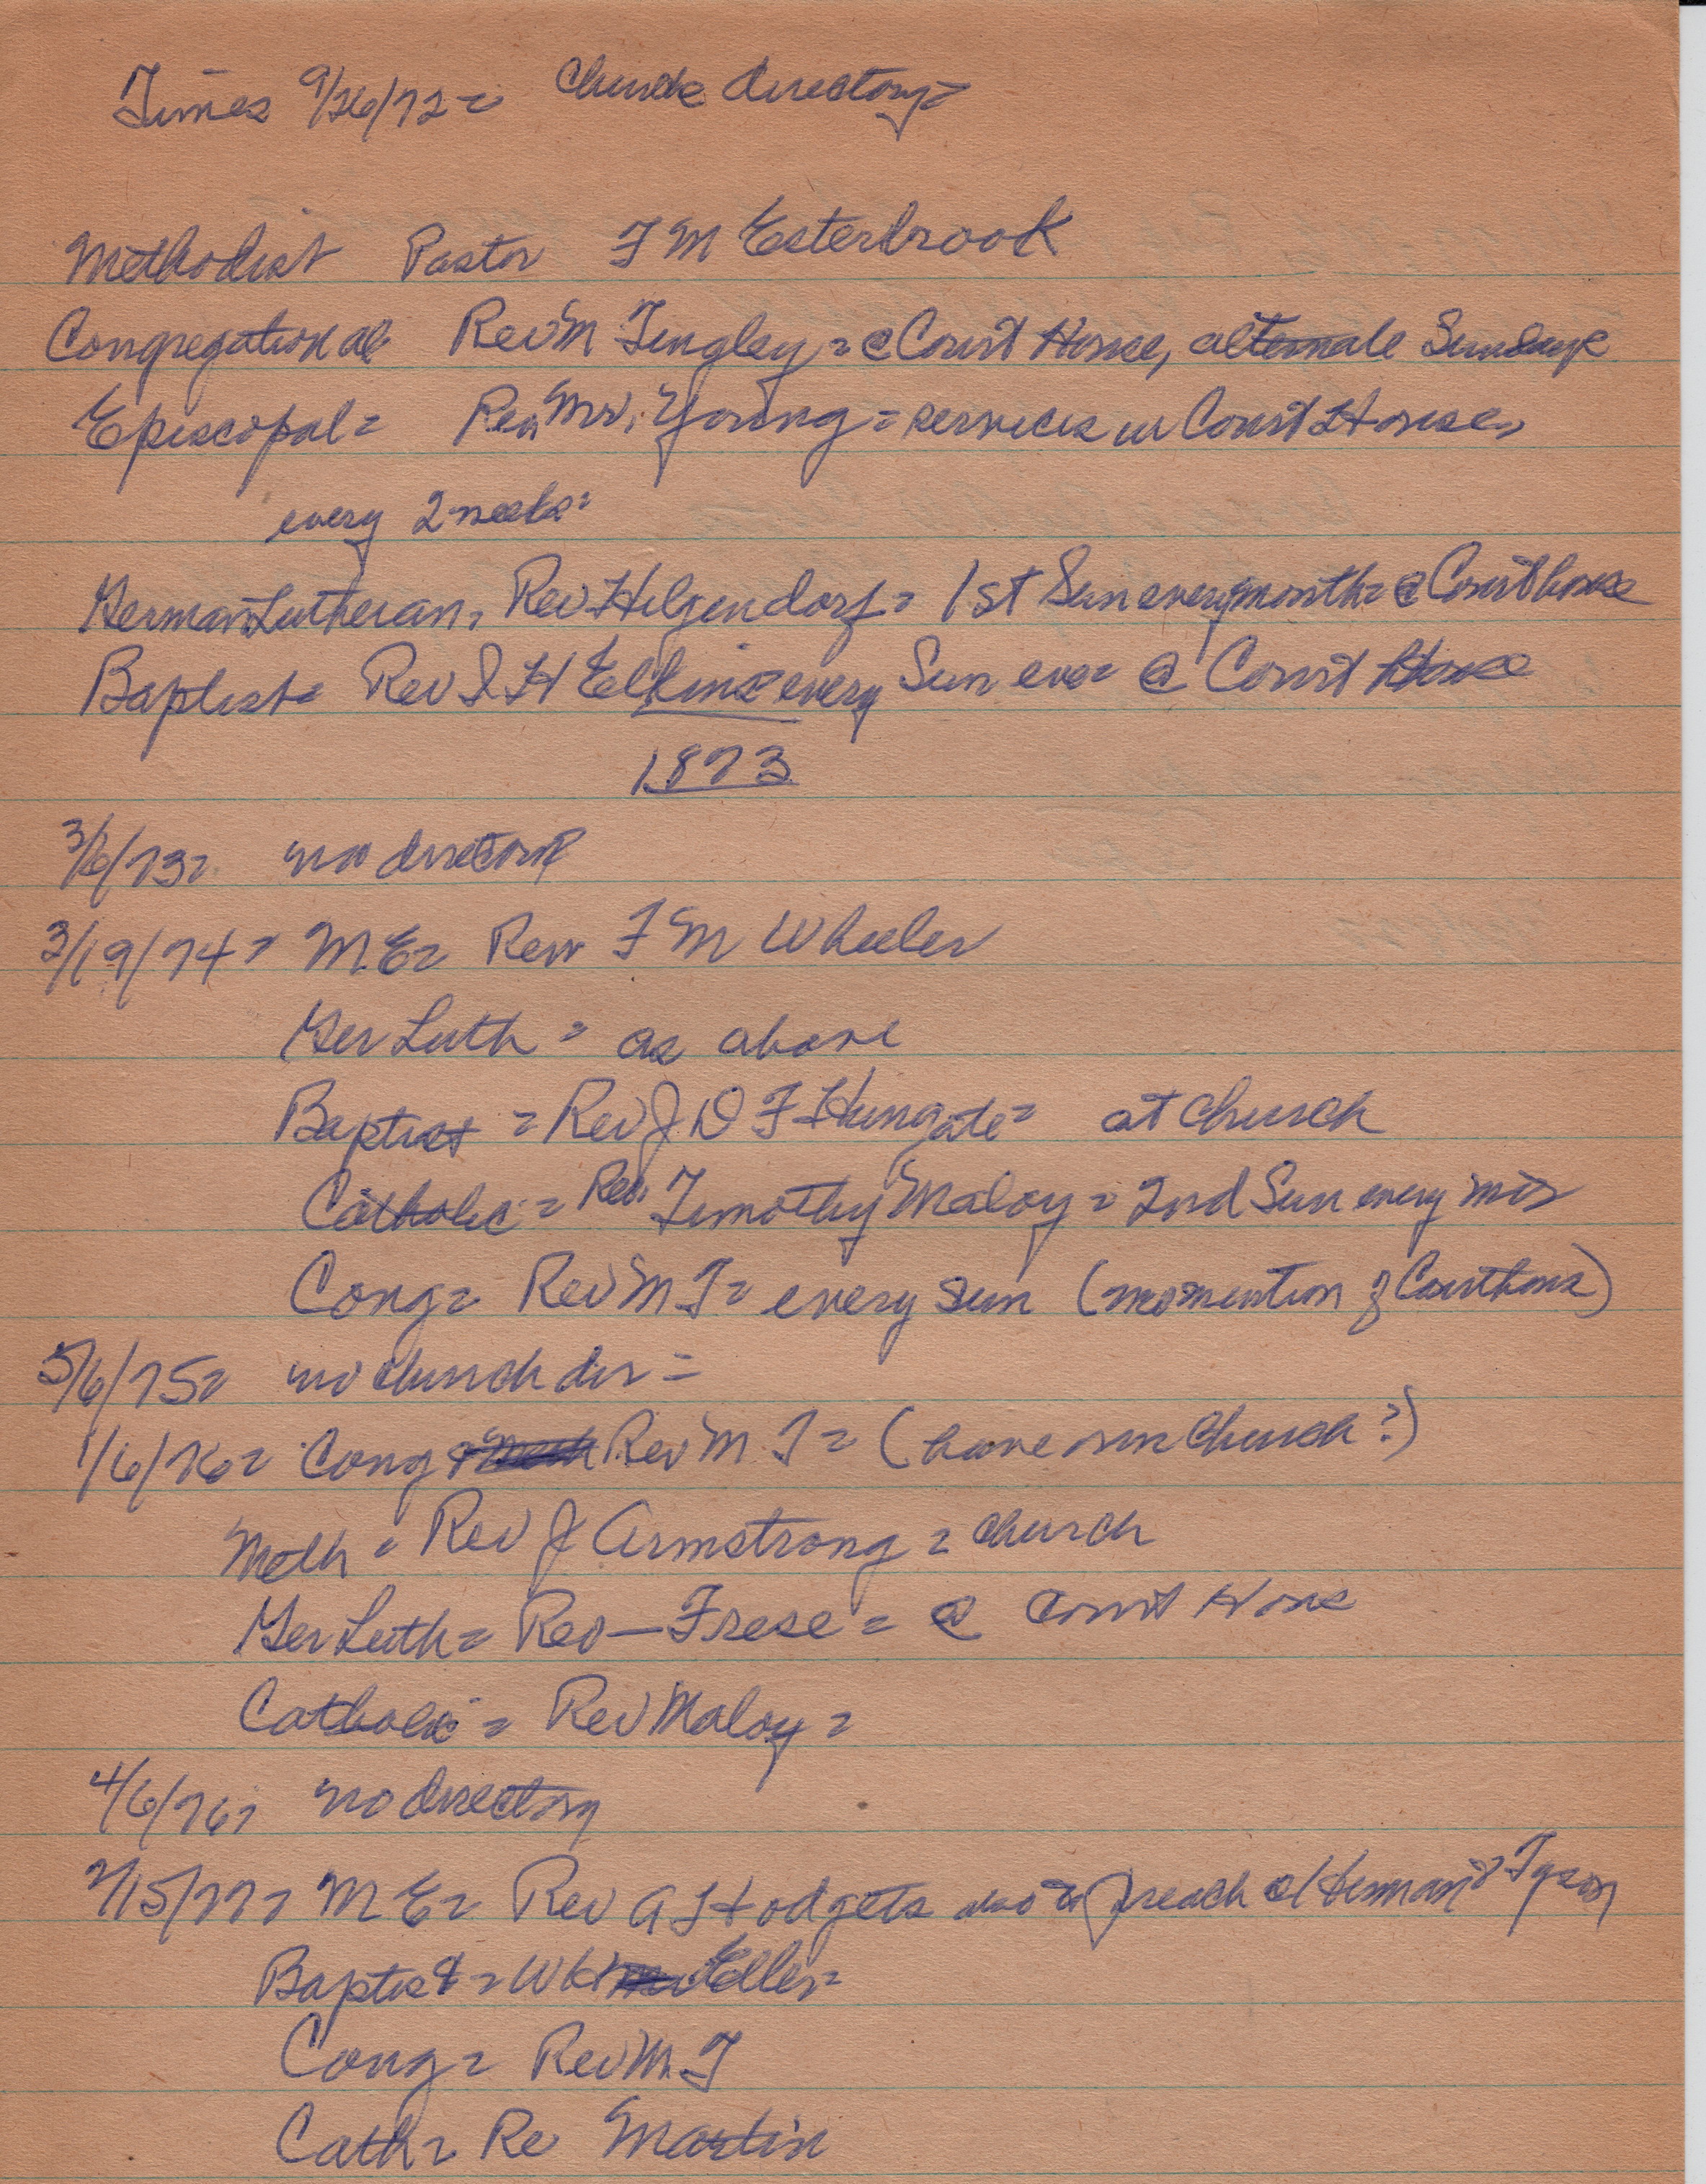 Times 9/26/72 = Church directory =
Methodist Pastor F M Esterbrook
Congregational Rev M Tingley = @ Court House, alternate Sundays
Episcopal = Rev Mr. Young = services in Court House,
every 2 weeks =
German Lutheran, Rev Hilgendorf = 1st Sun every month = @ Courthouse
Baptist = Rev I H Elkins = every Sun eve = @ Court House
1873
3/6/73 = no directory
3/19/74 = M.E = Rev F M Wheeler
Ger Luth = as above
Baptist = Rev J D F Hungate = at church
Catholic = Rev. Timothy Maloy = 2nd Sun every
Cong = Rev M T = every sun (no mention of Courthouse)
5/6/75 = no church dir =
1/6/76 = Cong Rev M. T = (have own church?)
Meth = Rev J Armstrong = church
Ger Luth = Rev — Frese = @ Court House
Catholic = Rev Maloy =
4/6/76 = no directory
2/15/77 = M E = Rev A Hodgets also to preach @ Herman & Tyson
Baptist = W H Eller =
Cong = Rev M. T
Cath = Re Martin